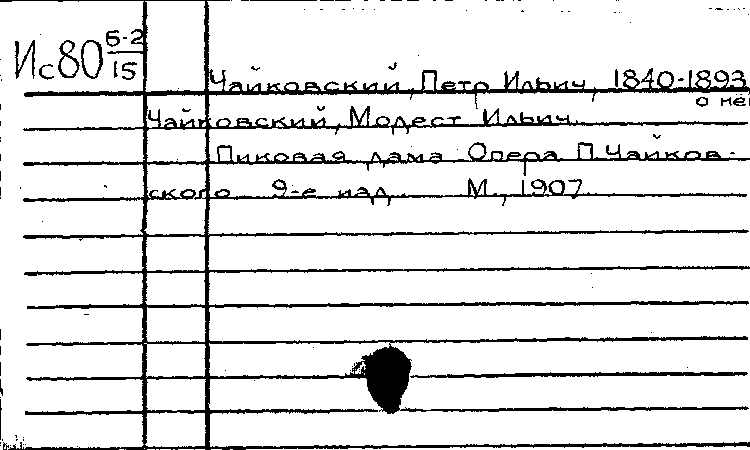 Ис80 Б-2/15
Чайковский, Петр Ильич, 1840-1893
о нем
Чайковский, Модест Ильич.
Пиковая дама Опера П.Чайков-
ского 9-е изд. М., 1907.